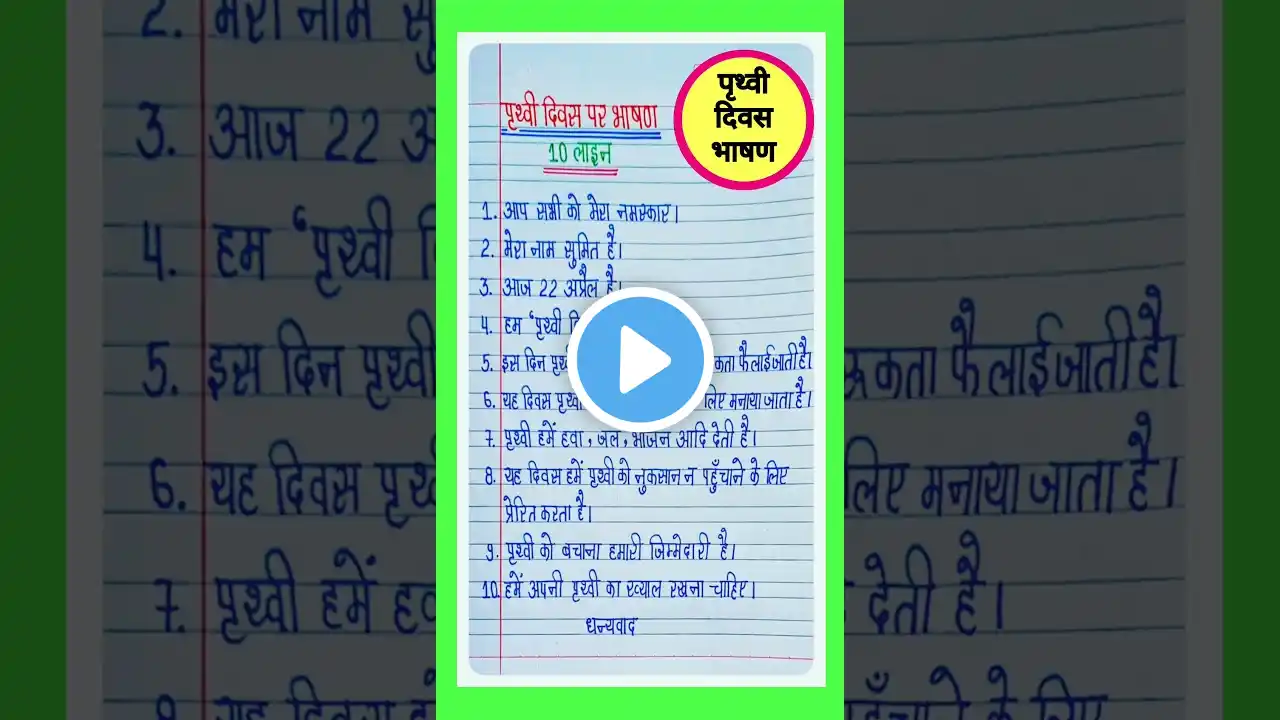 पृथ्वी दिवस पर भाषण
10 लाइन
पृथ्वी
दिवस
भाषण
1. आप सभी को मेरा नमस्कार।
2. मेरा नाम सुमित है।
3. आज 22 अप्रैल है।
4. हम ‘पृथ्वी
5. इस दिन फैलाई जाती है।
6. यह दिवस लिए मनाया जाता है।
7. पृथ्वी हमें हवा, जल, भोजन आदि देती है।
8. यह दिवस हमें पृथ्वी को नुकसान न पहुँचाने के लिए
प्रेरित करता है।
9. पृथ्वी को बचाना हमारी जिम्मेदारी है।
10. हमें अपनी पृथ्वी का ख्याल रखना चाहिए।
धन्यवाद